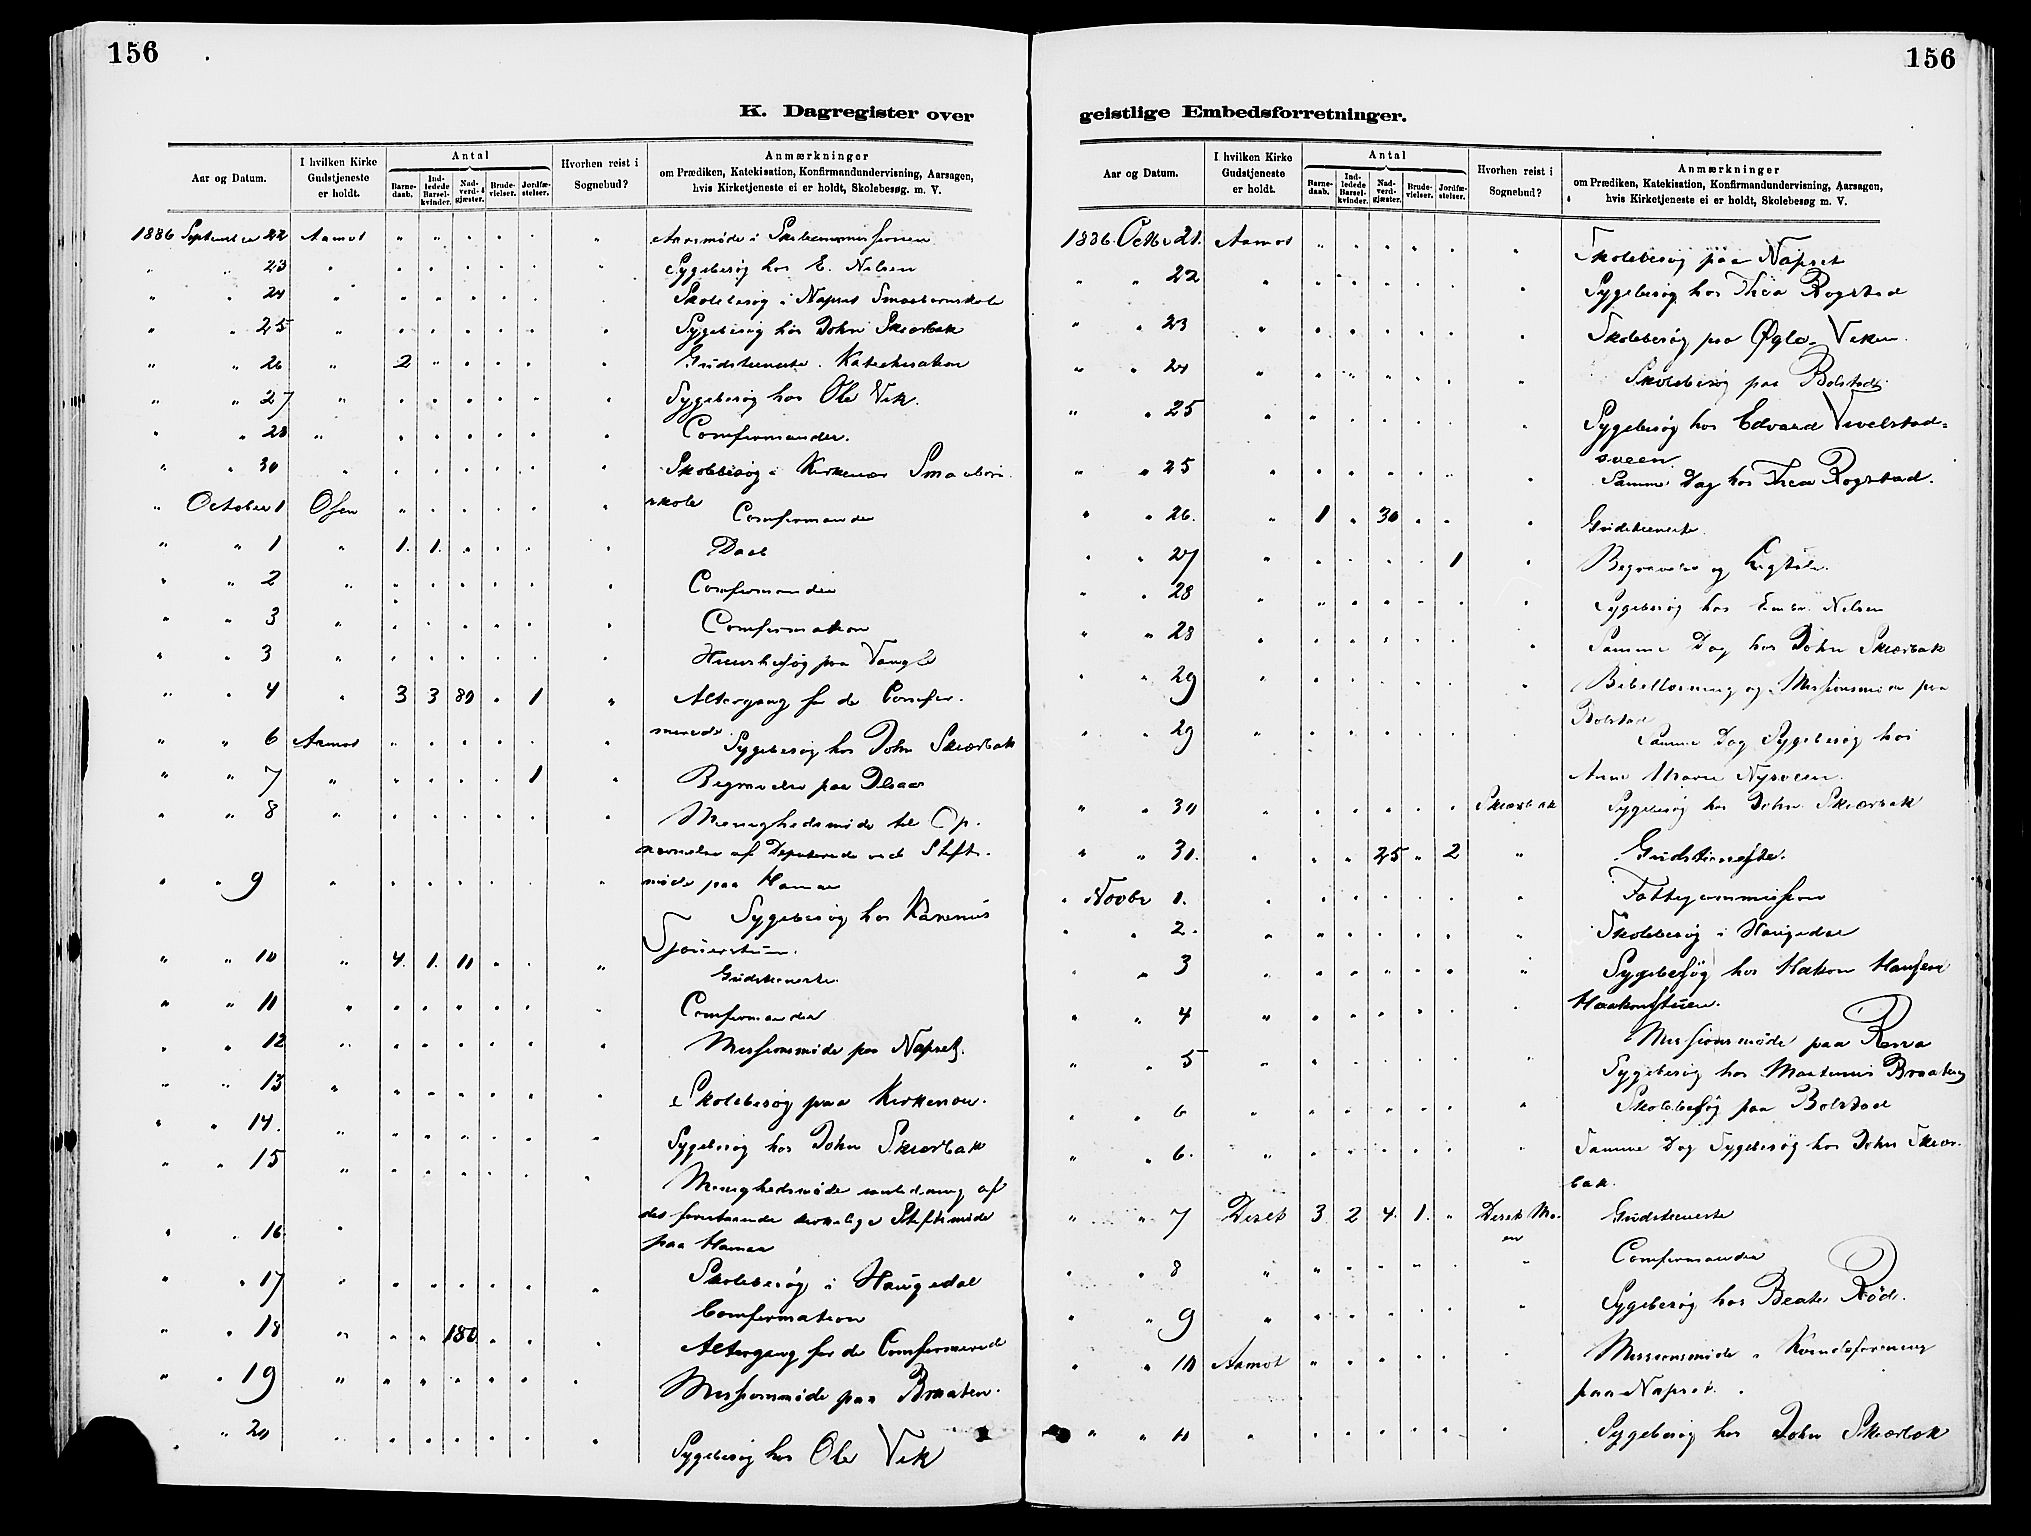 156
K. Dagregister over
Aar og Datum.
I hvilken Kirke Gudstjeneste er holdt.
Antal
Barne-daab.
Ind-ledede Barsel-kvinder.
Nad-verd-gjæster.
Brude-vielser.
Jordfæ-stelser.
Hvorhen reist i Sognebud?
Anmærkninger
om Prædiken, Katekisation, Konfirmandundervisning, Aarsagen,
hvis Kirketjeneste ei er holdt, Skolebesøg. m. V.
1886 September 22 Aamot " " " " " " Aarsmøde i Skolecommissionen
" " 23 " " " " " " " Sygebesøg hos E. Nilsen
" " 24 " " " " " " " Skolebesøg i Napset Smaabørnskole
" " 25 " " " " " " " Sygebesøg hos John Skjærbak
" " 26 " 2 " " " " " Gudstieneste. Katechisation
" " 27 " " " " " " " Sygebesøg hos Ole Vik.
" " 28 " " " " " " " Comfirmander.
" " 30 " " " " " " " Skolebesøg i Kirkenær Smaabørn
skole
" October 1 Osen " " " " " " Comfirmander
" " 1 " 1. 1. " " " " Daab
" " 2 " " " " " " " Comfirmander
" " 3 " " " " " " " Comfirmation
" " 3 " " " " " " " Huusbesøg paa
" " 4 " 3 3 80 " 1 " Altergang for de Comfir-
merede.
" " 6 Aamot " " " " " " Sygebesøg hos John Skjærbak
" " 7 " " " " " 1 " Begravelse paa
" " 8 " " " " " " " Menighedsmøde til Op-
nævnelse af Deputerede ved Stifts-
møde paa Hamar
" " 9 " " " " " " " Sygebesøg hos Karenus
" " 10 " 4. 1. 11 " " " Gudstieneste.
" " 11 " " " " " " " Comfirmander
" " 12 " " " " " " " Missionsmøde paa Napset.
" " 13 " " " " " " " Skolebesøg paa Kirkenær.
" " 14. " " " " " " " Sygebesøg hos John Skjærbak
" " 15 " " " " " " " Menighedsmøde af
det forestaaende kirkelige Stiftsmøde
paa Hamar
" " 16 " Skolebesøg i Haugedal
" " 17 " " " " " " " Comfirmation
" " 18 " " " 180 " " " Altergang for de Comfirmerede
" " 19 " " " " " " " Missionsmøde paa Braaten.
" " 20 " " " " " " " Sygebesøg hos Ole Vik
156
geistlige Embedsforretninger.
Aar og Datum.
I hvilken Kirke Gudstjeneste er holdt.
Antal
Barne-daab.
Ind-ledede Barsel-kvinder.
Nad-verd-gjæster.
Brude-vielser.
Jordfæ-stelser.
Hvorhen reist i Sognebud?
Anmærkninger
om Prædiken, Katekisation, Konfirmandundervisning, Aarsagen,
hvis Kirketjeneste ei er holdt, Skolebesøg m. V.
1886. Octbr 21. Aamot " " " " " " Skolebesøg paa Napset
" " 22 " " " " " " " Sygebesøg hos Thea Rogstad
" " 23 " " " " " " " Skolebesøg paa
" " 24 " " " " " " " Skolebesøg paa Bolstad.
" " 25 " " " " " " " Sygebesøg hos Edvard Vivelstad-
sveen.
" " 25 " " " " " " " Samme Dag hos Thea Rogstad.
" " 26. " 1 " 30 " " " Gudstieneste
" " 27 " " " " " 1 " Begravelse og Ligtale.
" " 28 " " " " " " " Sygebesøg hos Nilsen
" " 28 " " " " " " " Samme Dag hos John Skjærbak
" " 29 " " " " " " " Bibellæsning og Missionsmøde paa
Bolstad
" " 29 " " " " " " " Samme Dag Sygebesøg hos
Anne Marie Nysveen.
" " 30 " " " " " " Skjærbak Sygebesøg hos John Skjærbak
" " 31. " " " 25 " 2 " Gudstieneste.
" Novbr 1. " " " " " " " Fattigcommission
" " 2. " " " " " " " Skolebesøg i Haugedal
" " 3 " " " " " " " Sygebesøg hos Hakon Hansen
Haakonstuen.
" " 4 " " " " " " " Missionsmøde paa Rena
" " 5 " " " " " " " Sygebesøg hos Martinus Braaten
" " 6 " " " " " " " Skolebesøg paa Bolstad
" " 6. " " " " " " " Samme Dag Sygebesøg hos John Skjær-
bak.
" " 7 Deset 3 2 4. 1. " Deset Mo-
en Gudstieneste
" " 8 " " " " " " " Comfirmander
" " 9 " " " " " " " Sygebesøg hos Beate Rød.
" " 10 Aamot " " " " " " Missionsmøde i Kvindeforening
paa Napset.
" " 11 " " " " " " " Sygebesøg hos John Skjærbak